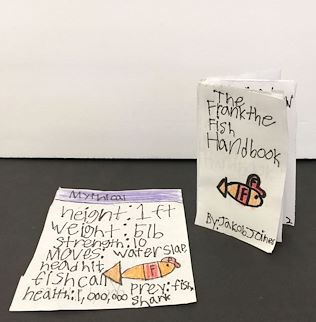 Mythical
height: 1 ft
weight: 5 lb
strength: 10
moves: waterslae
head hit
fish call
F
prey: fish
health: 1,000,000
shark
The
Frank the
Fish
Handbook
F
By: Jakob Joiner
2